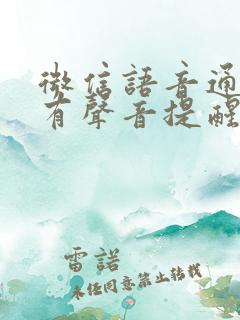 微信語音通
有聲音提醒
雷諾
未经同意禁止转载